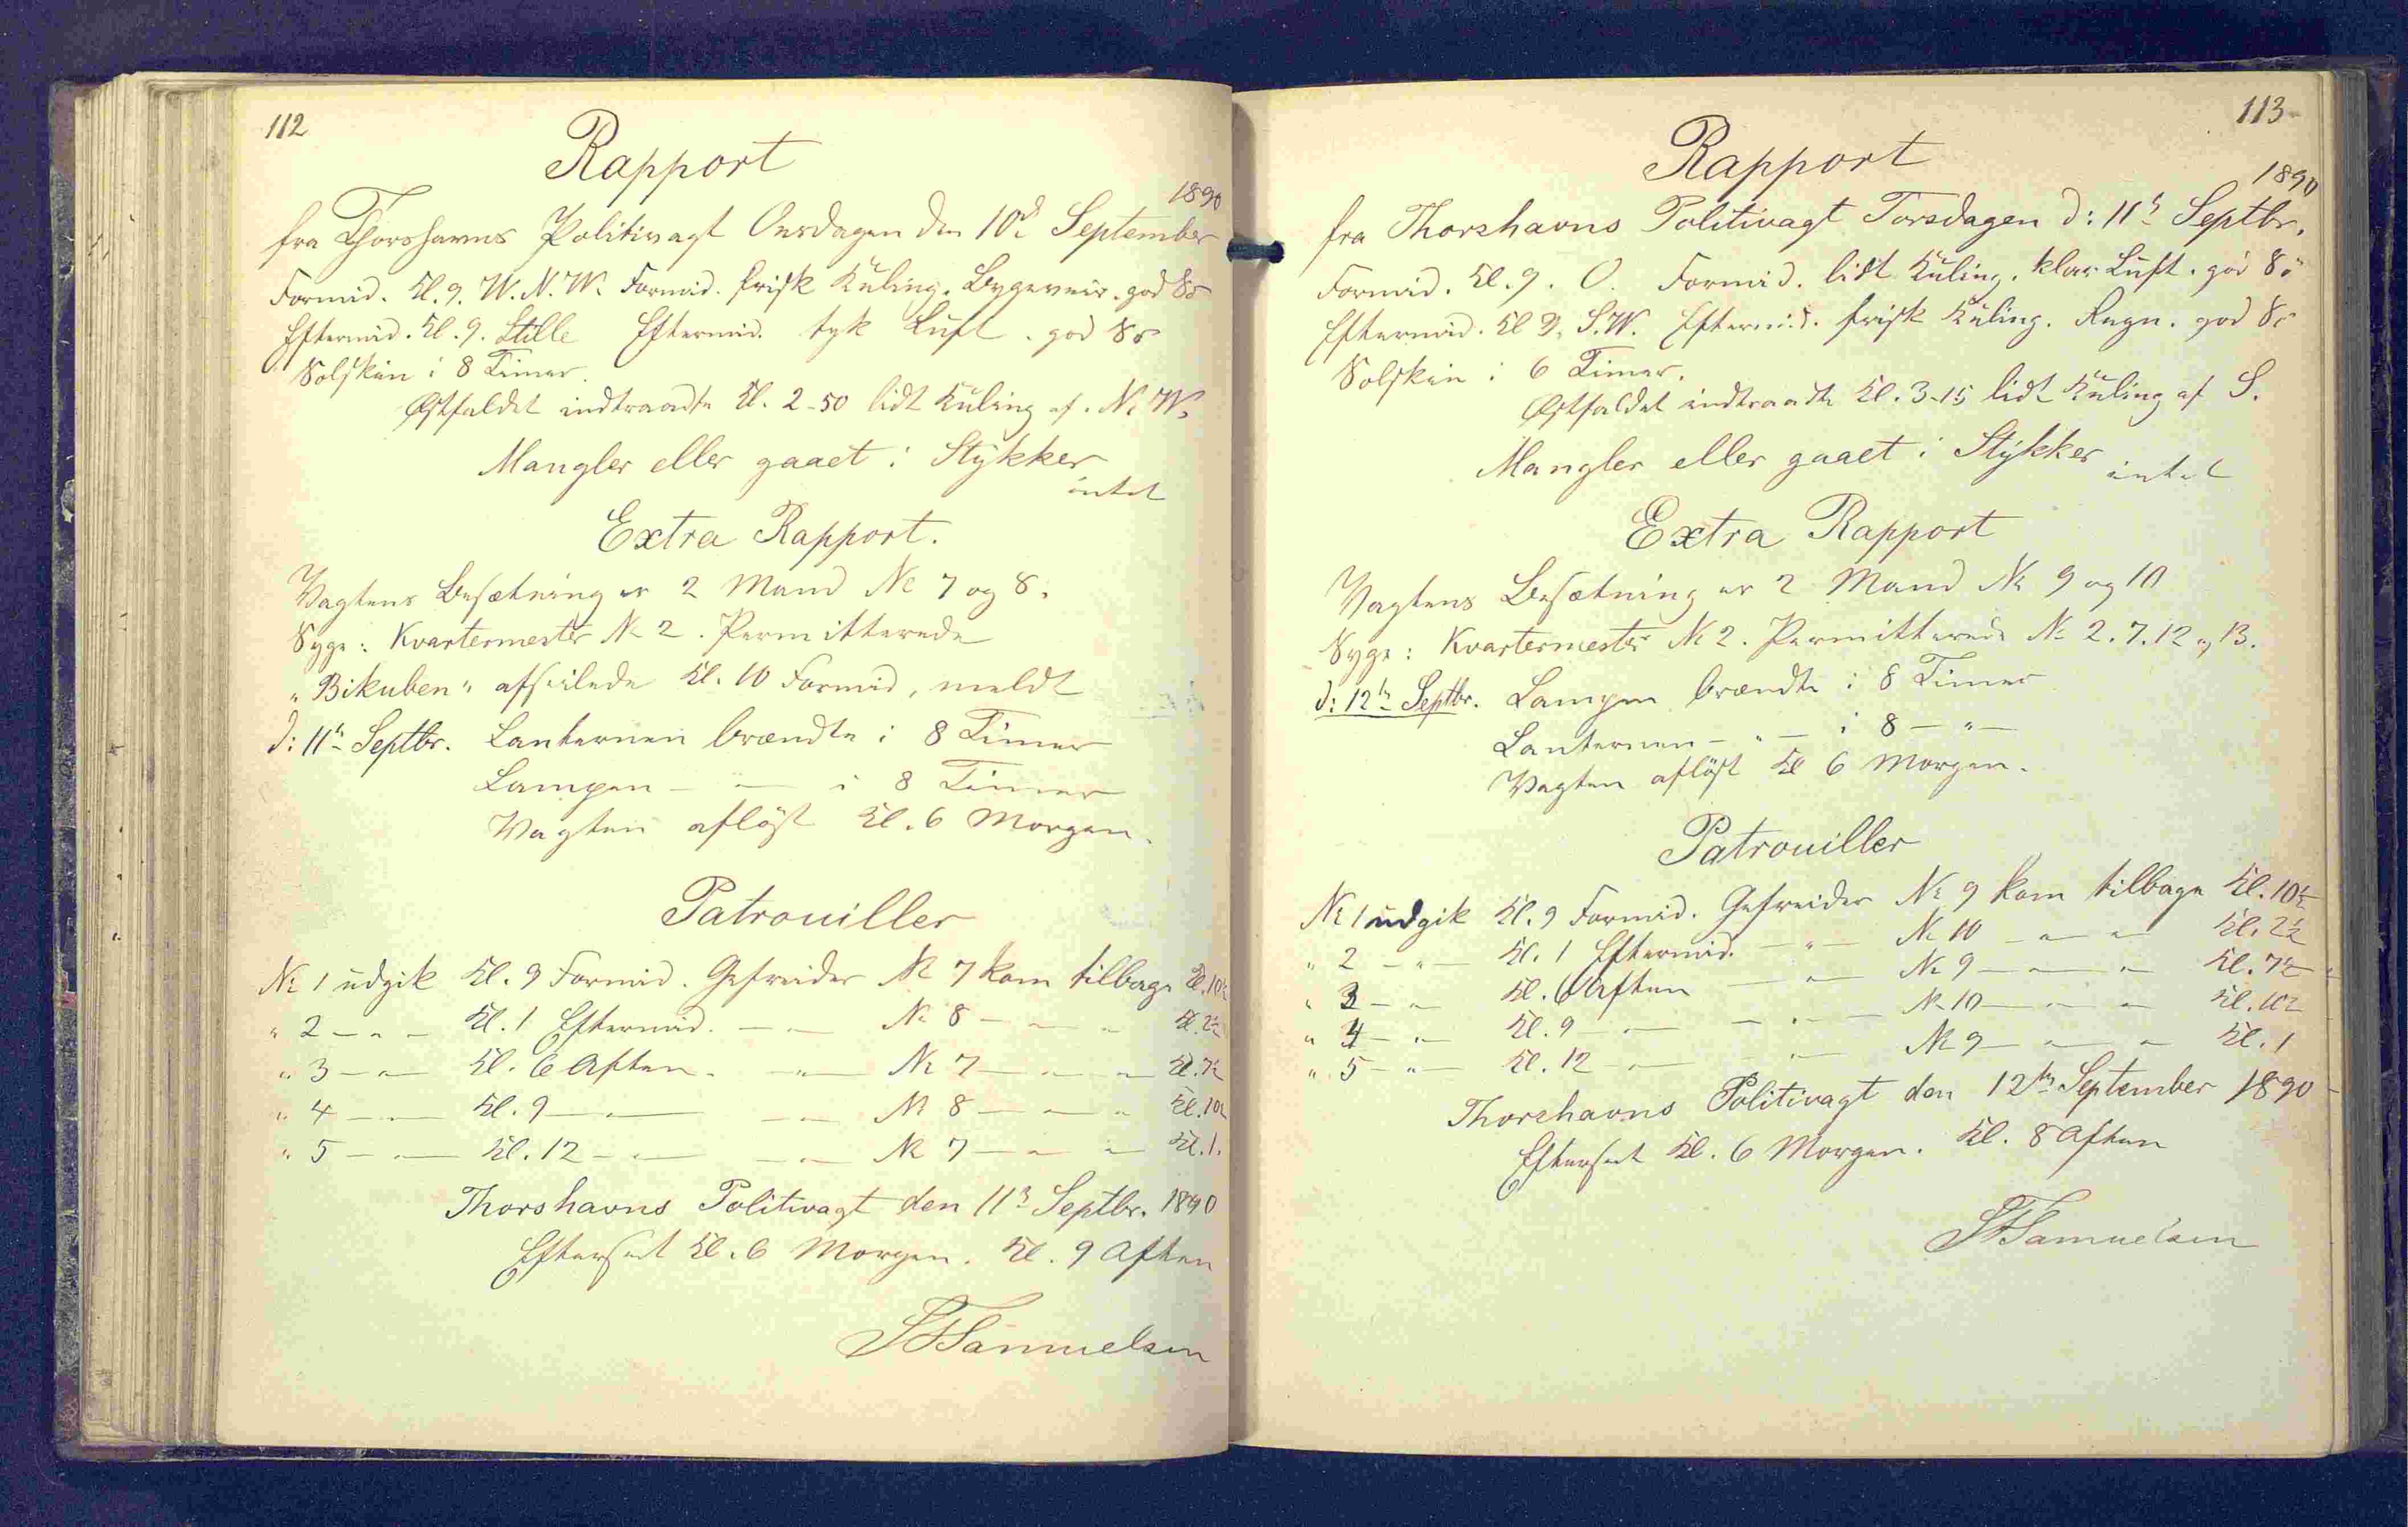 112
Rapport
1890
fra Thorshavns Politivagt Onsdagen den 10d September
Formid. Kl. 9. W.N.W. Formid. frisk Kuling. Bygeveir. god Sö
Eftermid. Kl. 9. Stille Eftermid. tyk Luft. god Sö
Solskin i 8 Timer.
Østfaldet indtraadte Kl. 2-50 lidt Kuling af N.W.
Mangler eller gaaet i Stykker
intet
Extra Rapport.
Vagtens Besætning er 2 Mand No 7 og 8.
Syge: Kvartermester No 2. Permitterede
"Bikuben" afseilede Kl. 10 Formid, meldt
d: 11te Septbr. Lanternen brændte i 8 Timer
Lampen — " — i 8 Timer
Vagten aflöst Kl. 6 Morgen.
Patrouiller
No 1 udgik Kl. 9 Formid. Gefreider No 7 kom tilbage Kl. 10½
" 2 — " — Kl. 1 Eftermid. — " — No 8 — " — " Kl. 2½
" 3 — " — Kl. 6 Aften. — " — No 7 — " — " Kl. 7½
" 4 — " — Kl. 9 — " — — " — No 8 — " — " Kl. 10½
" 5 — " — Kl. 12 — " — — " — No 7 — " — " Kl. 1.
Thorshavns Politivagt den 11te Septbr. 1890
Efterseet Kl. 6 Morgen. Kl. 9 Aften
Samuelsen
113
Rapport
1890
fra Thorshavns Politivagt Torsdagen d: 11te Septbr.
Formid. Kl. 9. O. Formid. lidt Kuling. klar Luft. god Sö
Eftermid. Kl 9. S.W. Eftermid. frisk Kuling. Regn. god Sö
Solskin i 6 Timer.
Østfaldet indtraadte Kl. 3-15 lidt Kuling af S.
Mangler eller gaaet i Stykker
intet
Extra Rapport
Vagtens Besætning er 2 Mand No 9 og 10
Syge: Kvartermester No 2. Permitterede No 2. 7. 12 og 13.
d: 12te Septbr. Lampen brændte i 8 Timer
Lanternen — " — i 8 — " —
Vagten aflöst Kl 6 Morgen.
Patrouiller
No 1 udgik Kl. 9 Formid. Gefreider No 9 kom tilbage Kl. 10½
" 2 — " — Kl. 1 Eftermid. — " — No 10 — " — " Kl. 2½
" 3 — " Kl. 6 Aften — " — No 9 — " — " Kl. 7½
" 4 — " — Kl. 9 — " — — " — No 10 — " — " Kl. 10½
" 5 — " — Kl. 12 — " — — " — No 9 — " — " Kl. 1
Thorshavns Politivagt den 12te September 1890
Efterseet Kl. 6 Morgen. Kl. 8 Aften
Samuelsen